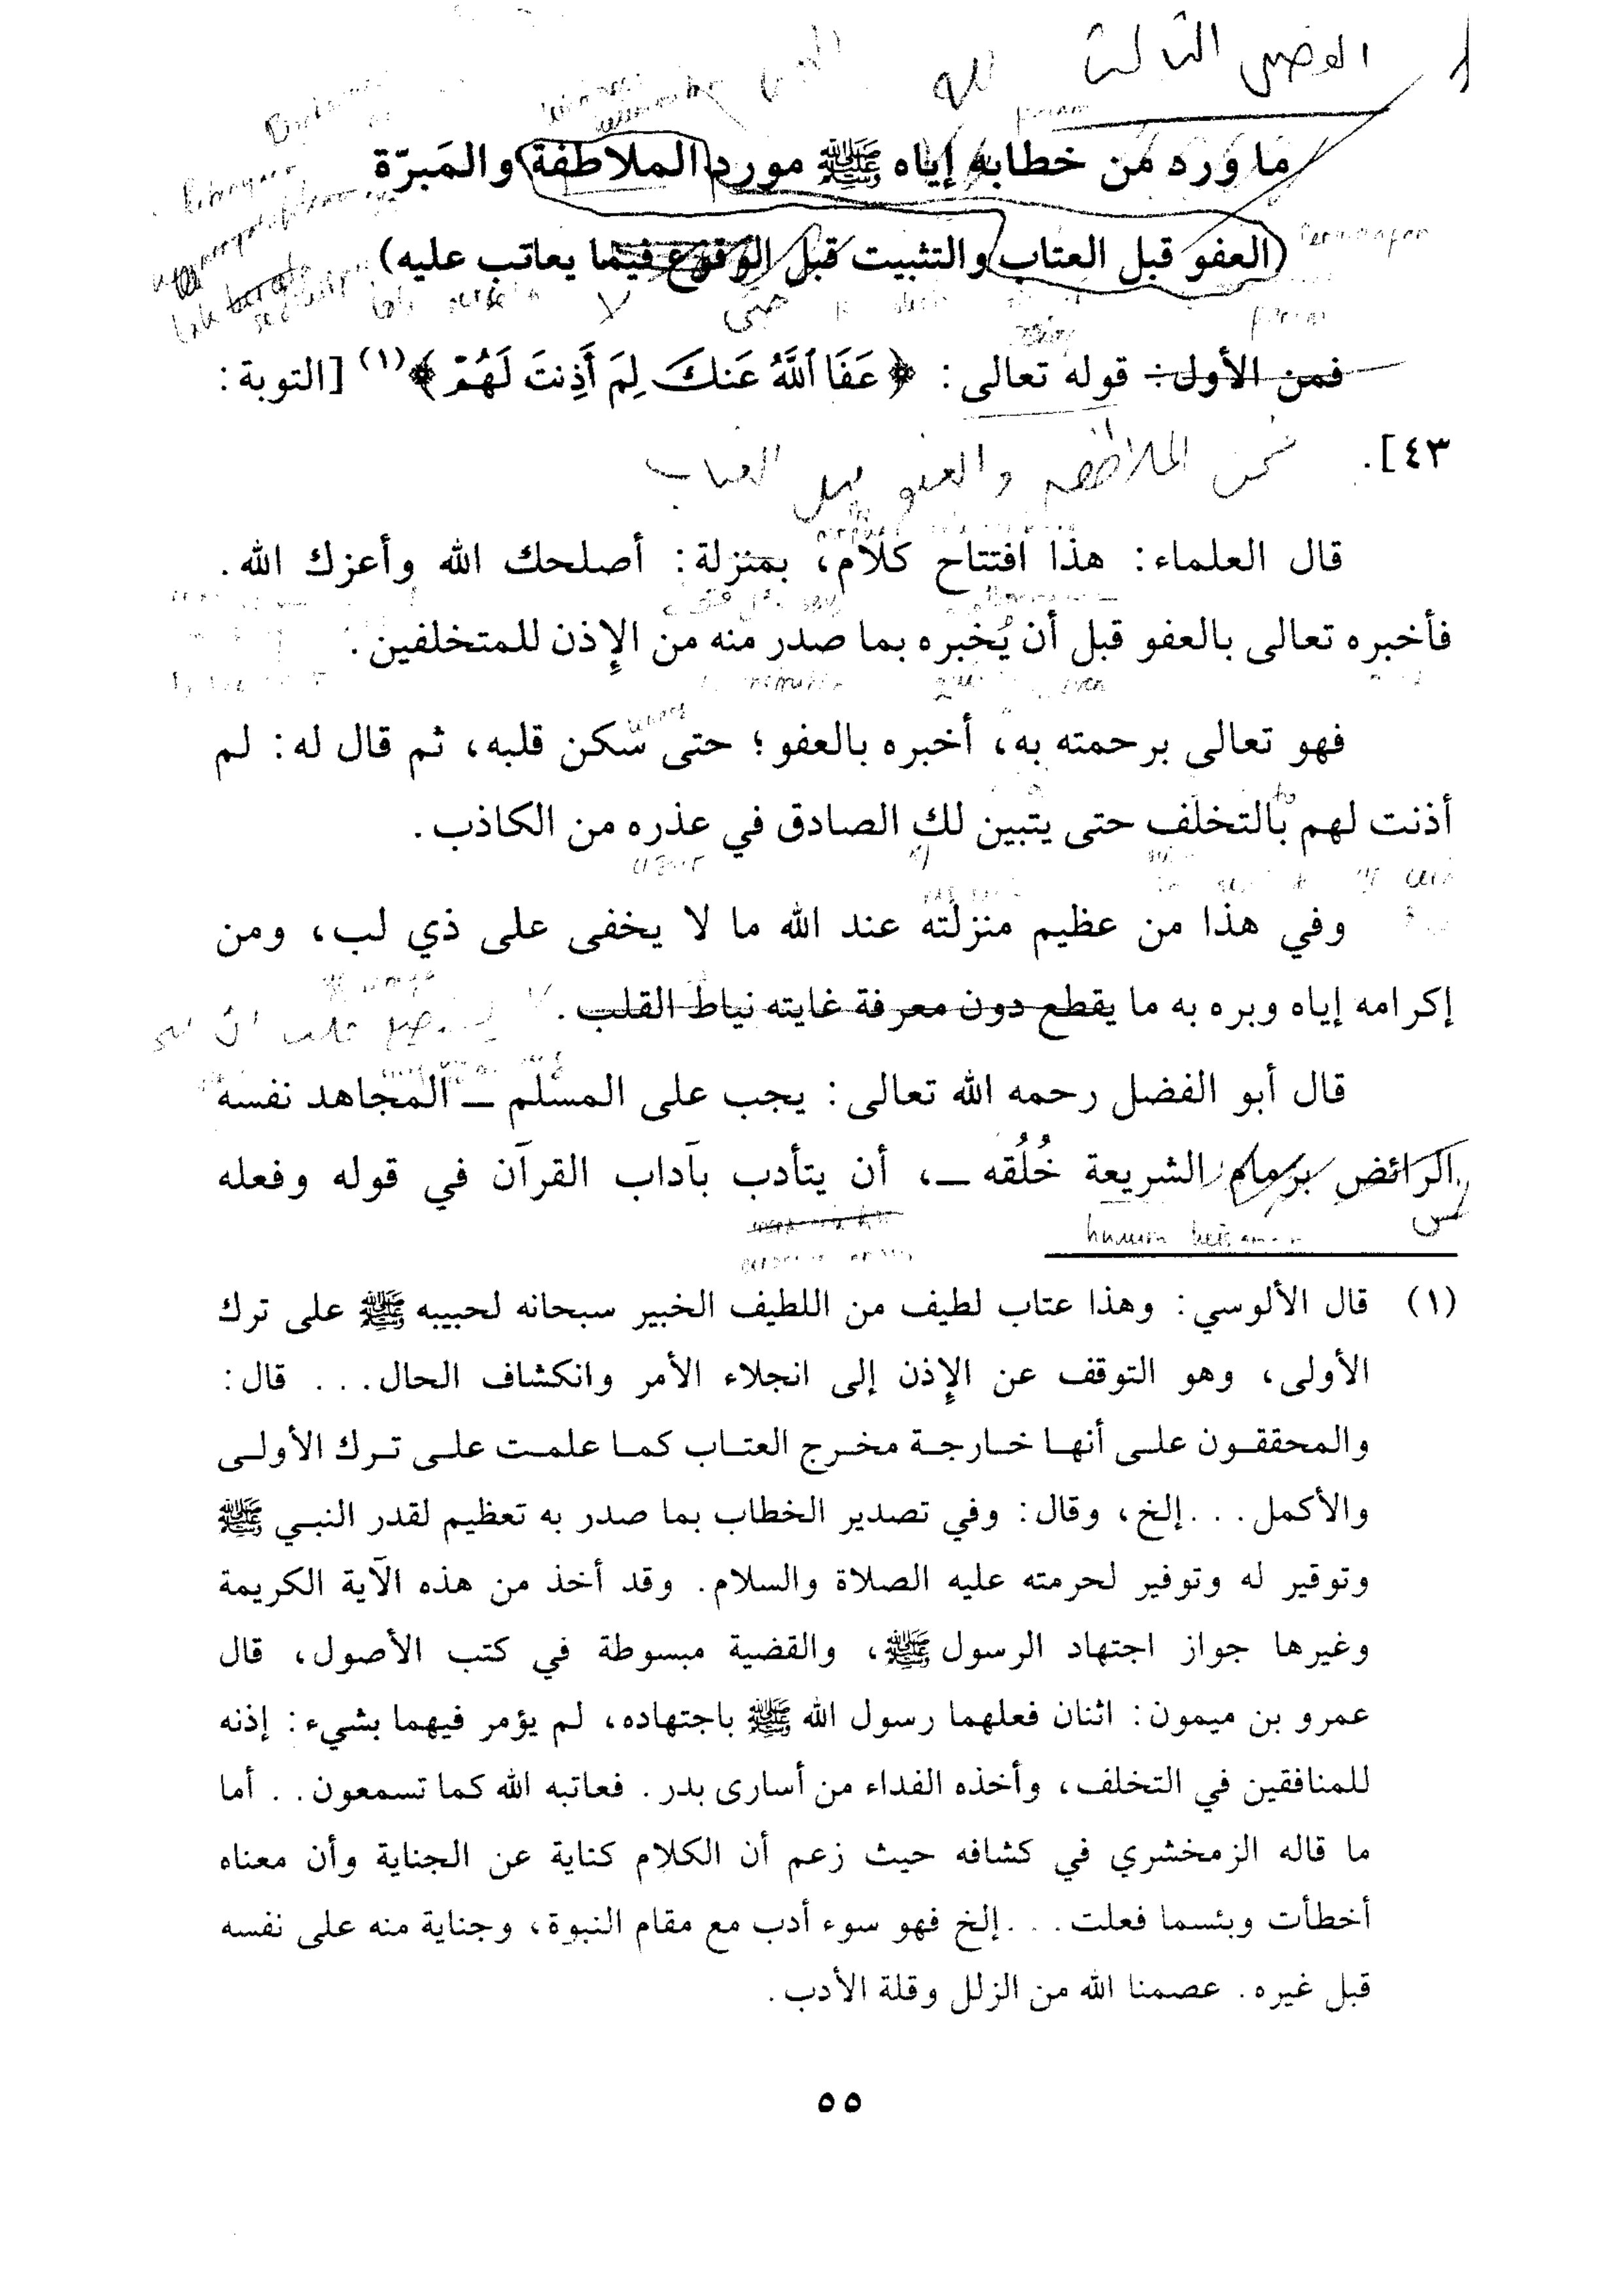 الفصل الثالث
ما ورد من خطابه إياه ﷺ مورد الملاطفة والمَبرّة
(العفو قبل العتاب والتثبيت قبل الوقوع فيما يعاتب عليه)
فمن الأول: قوله تعالى: ﴿عَفَا ٱللَّهُ عَنكَ لِمَ أَذِنتَ لَهُمْ﴾(١) [التوبة:
٤٣].
الملاطفة والعفو قبل العتاب
قال العلماء: هذا افتتاح كلام، بمنزلة: أصلحك الله وأعزك الله.
فأخبره تعالى بالعفو قبل أن يُخبره بما صدر منه من الإذن للمتخلفين.
فهو تعالى برحمته به، أخبره بالعفو؛ حتى سكن قلبه، ثم قال له: لم
أذنت لهم بالتخلف حتى يتبين لك الصادق في عذره من الكاذب.
وفي هذا من عظيم منزلته عند الله ما لا يخفى على ذي لب، ومن
إكرامه إياه وبره به ما يقطع دون معرفة غايته نياط القلب.
قال أبو الفضل رحمه الله تعالى: يجب على المسلم ــ المجاهد نفسه
الرائض بزمام الشريعة خُلُقه ــ، أن يتأدب بآداب القرآن في قوله وفعله
(١) قال الألوسي: وهذا عتاب لطيف من اللطيف الخبير سبحانه لحبيبه ﷺ على ترك
الأولى، وهو التوقف عن الإذن إلى انجلاء الأمر وانكشاف الحال... قال:
والمحققون على أنها خارجة مخرج العتاب كما علمت على ترك الأولى
والأكمل...إلخ، وقال: وفي تصدير الخطاب بما صدر به تعظيم لقدر النبي ﷺ
وتوقير له وتوفير لحرمته عليه الصلاة والسلام. وقد أخذ من هذه الآية الكريمة
وغيرها جواز اجتهاد الرسول ﷺ، والقضية مبسوطة في كتب الأصول، قال
عمرو بن ميمون: اثنان فعلهما رسول الله ﷺ باجتهاده، لم يؤمر فيهما بشيء: إذنه
للمنافقين في التخلف، وأخذه الفداء من أسارى بدر. فعاتبه الله كما تسمعون.. أما
ما قاله الزمخشري في كشافه حيث زعم أن الكلام كناية عن الجناية وأن معناه
أخطأت وبئسما فعلت...إلخ فهو سوء أدب مع مقام النبوة، وجناية منه على نفسه
قبل غيره. عصمنا الله من الزلل وقلة الأدب.
٥٥